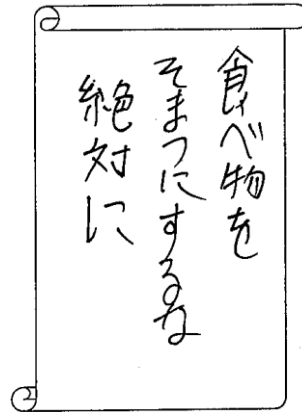 食べ物を
そまつにするな
絶対に